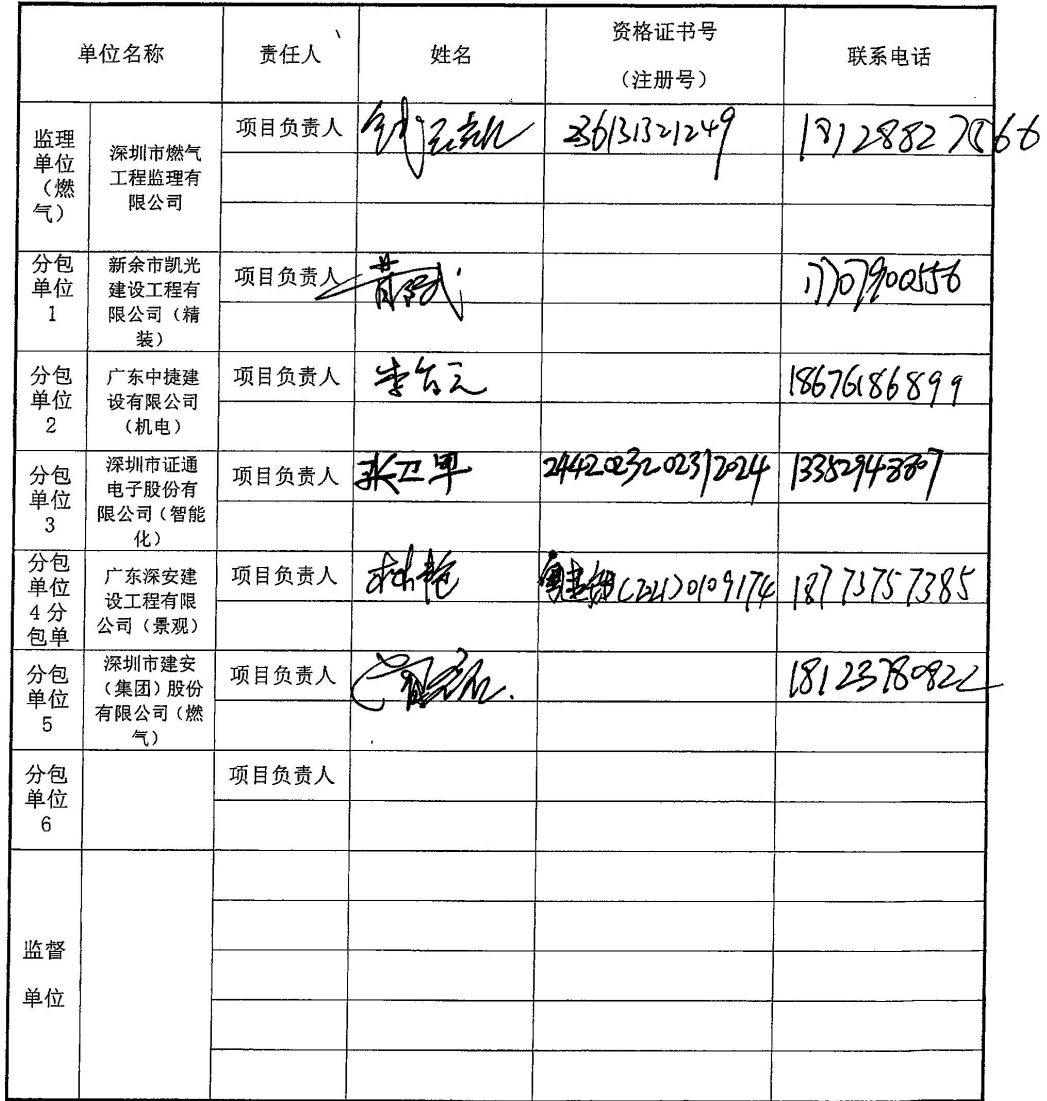 单位名称 责任人 姓名 资格证书号 联系电话
（注册号）
监理
单位
（燃
气）
深圳市燃气
工程监理有
限公司
项目负责人 236131321249
分包
单位
1
新余市凯光
建设工程有
限公司（精
装）
项目负责人 17707900556
分包
单位
2
广东中捷建
设有限公司
（机电）
项目负责人 18676186899
分包
单位
3
深圳市证通
电子股份有
限公司（智能
化）
项目负责人 张卫甲 2442023202312024
分包
单位
4分
包单
广东深安建
设工程有限
公司（景观）
项目负责人 林艳 18773757385
分包
单位
5
深圳市建安
（集团）股份
有限公司（燃
气）
项目负责人 18123780822
分包
单位
6
项目负责人
监督
单位